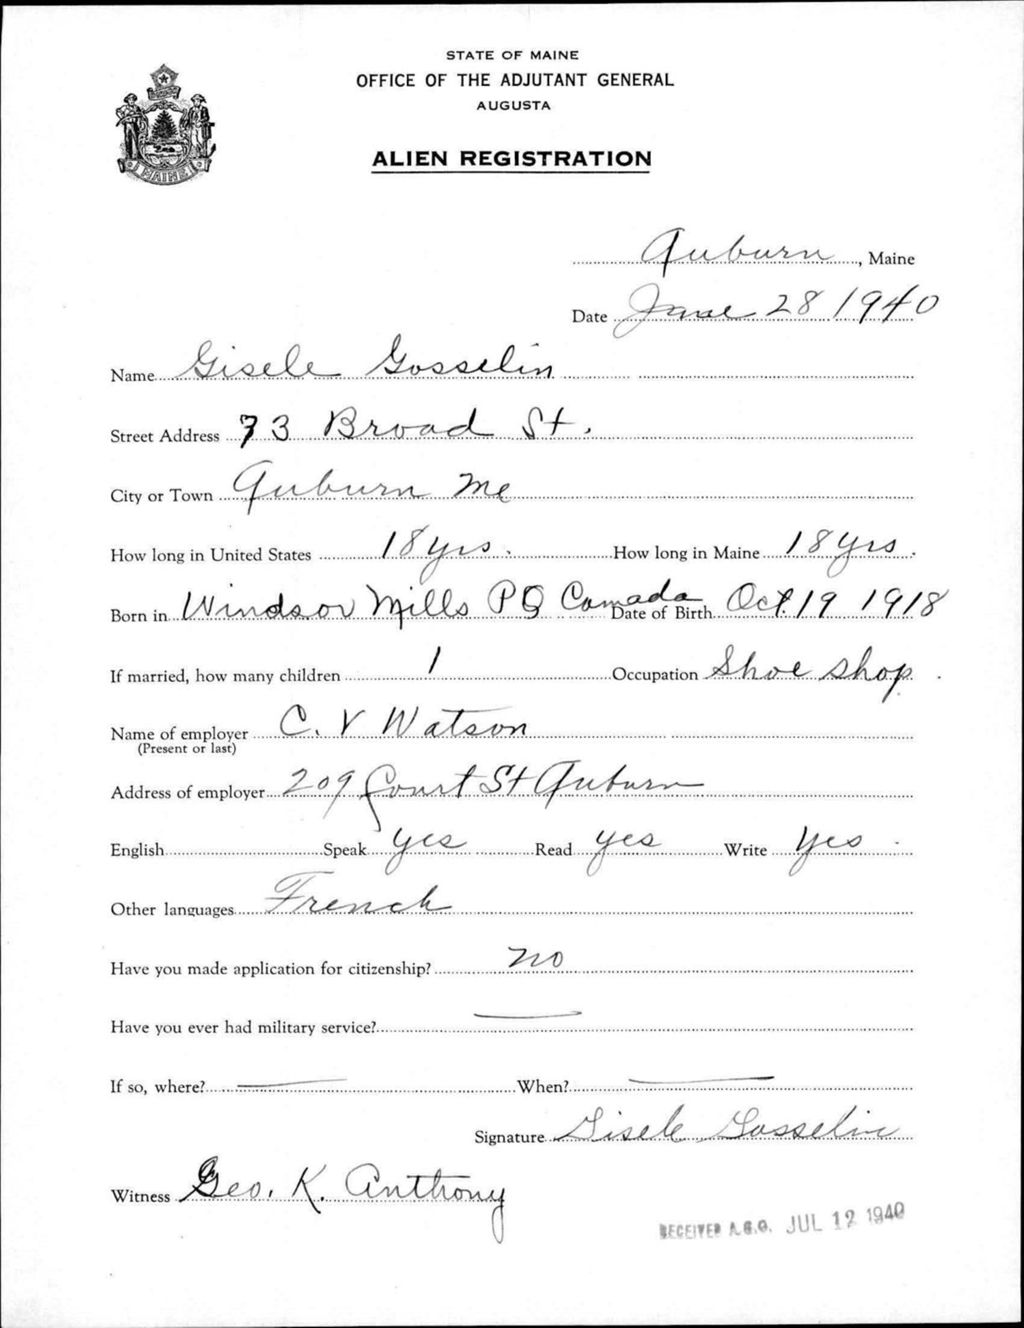 STATE OF MAINE
OFFICE OF THE ADJUTANT GENERAL
AUGUSTA
ALIEN REGISTRATION
MAINE
Auburn, Maine
Date June 28 1940
Name Gisele Gosselin
Street Address 73 Broad St.
City or Town Auburn Me
How long in United States 18 yrs. How long in Maine 18 yrs.
Born in Windsor Mills PQ Canada Date of Birth Oct. 19 1918
If married, how many children 1 Occupation Shoe shop.
Name of employer C. V Watson
(Present or last)
Address of employer 209 Court St Auburn
English Speak yes Read yes Write yes
Other languages French
Have you made application for citizenship? no
Have you ever had military service? —
If so, where? — When? —
Signature Gisele Gosselin
Witness Geo. K. Anthony
RECEIVED A.G.O. JUL 12 1940